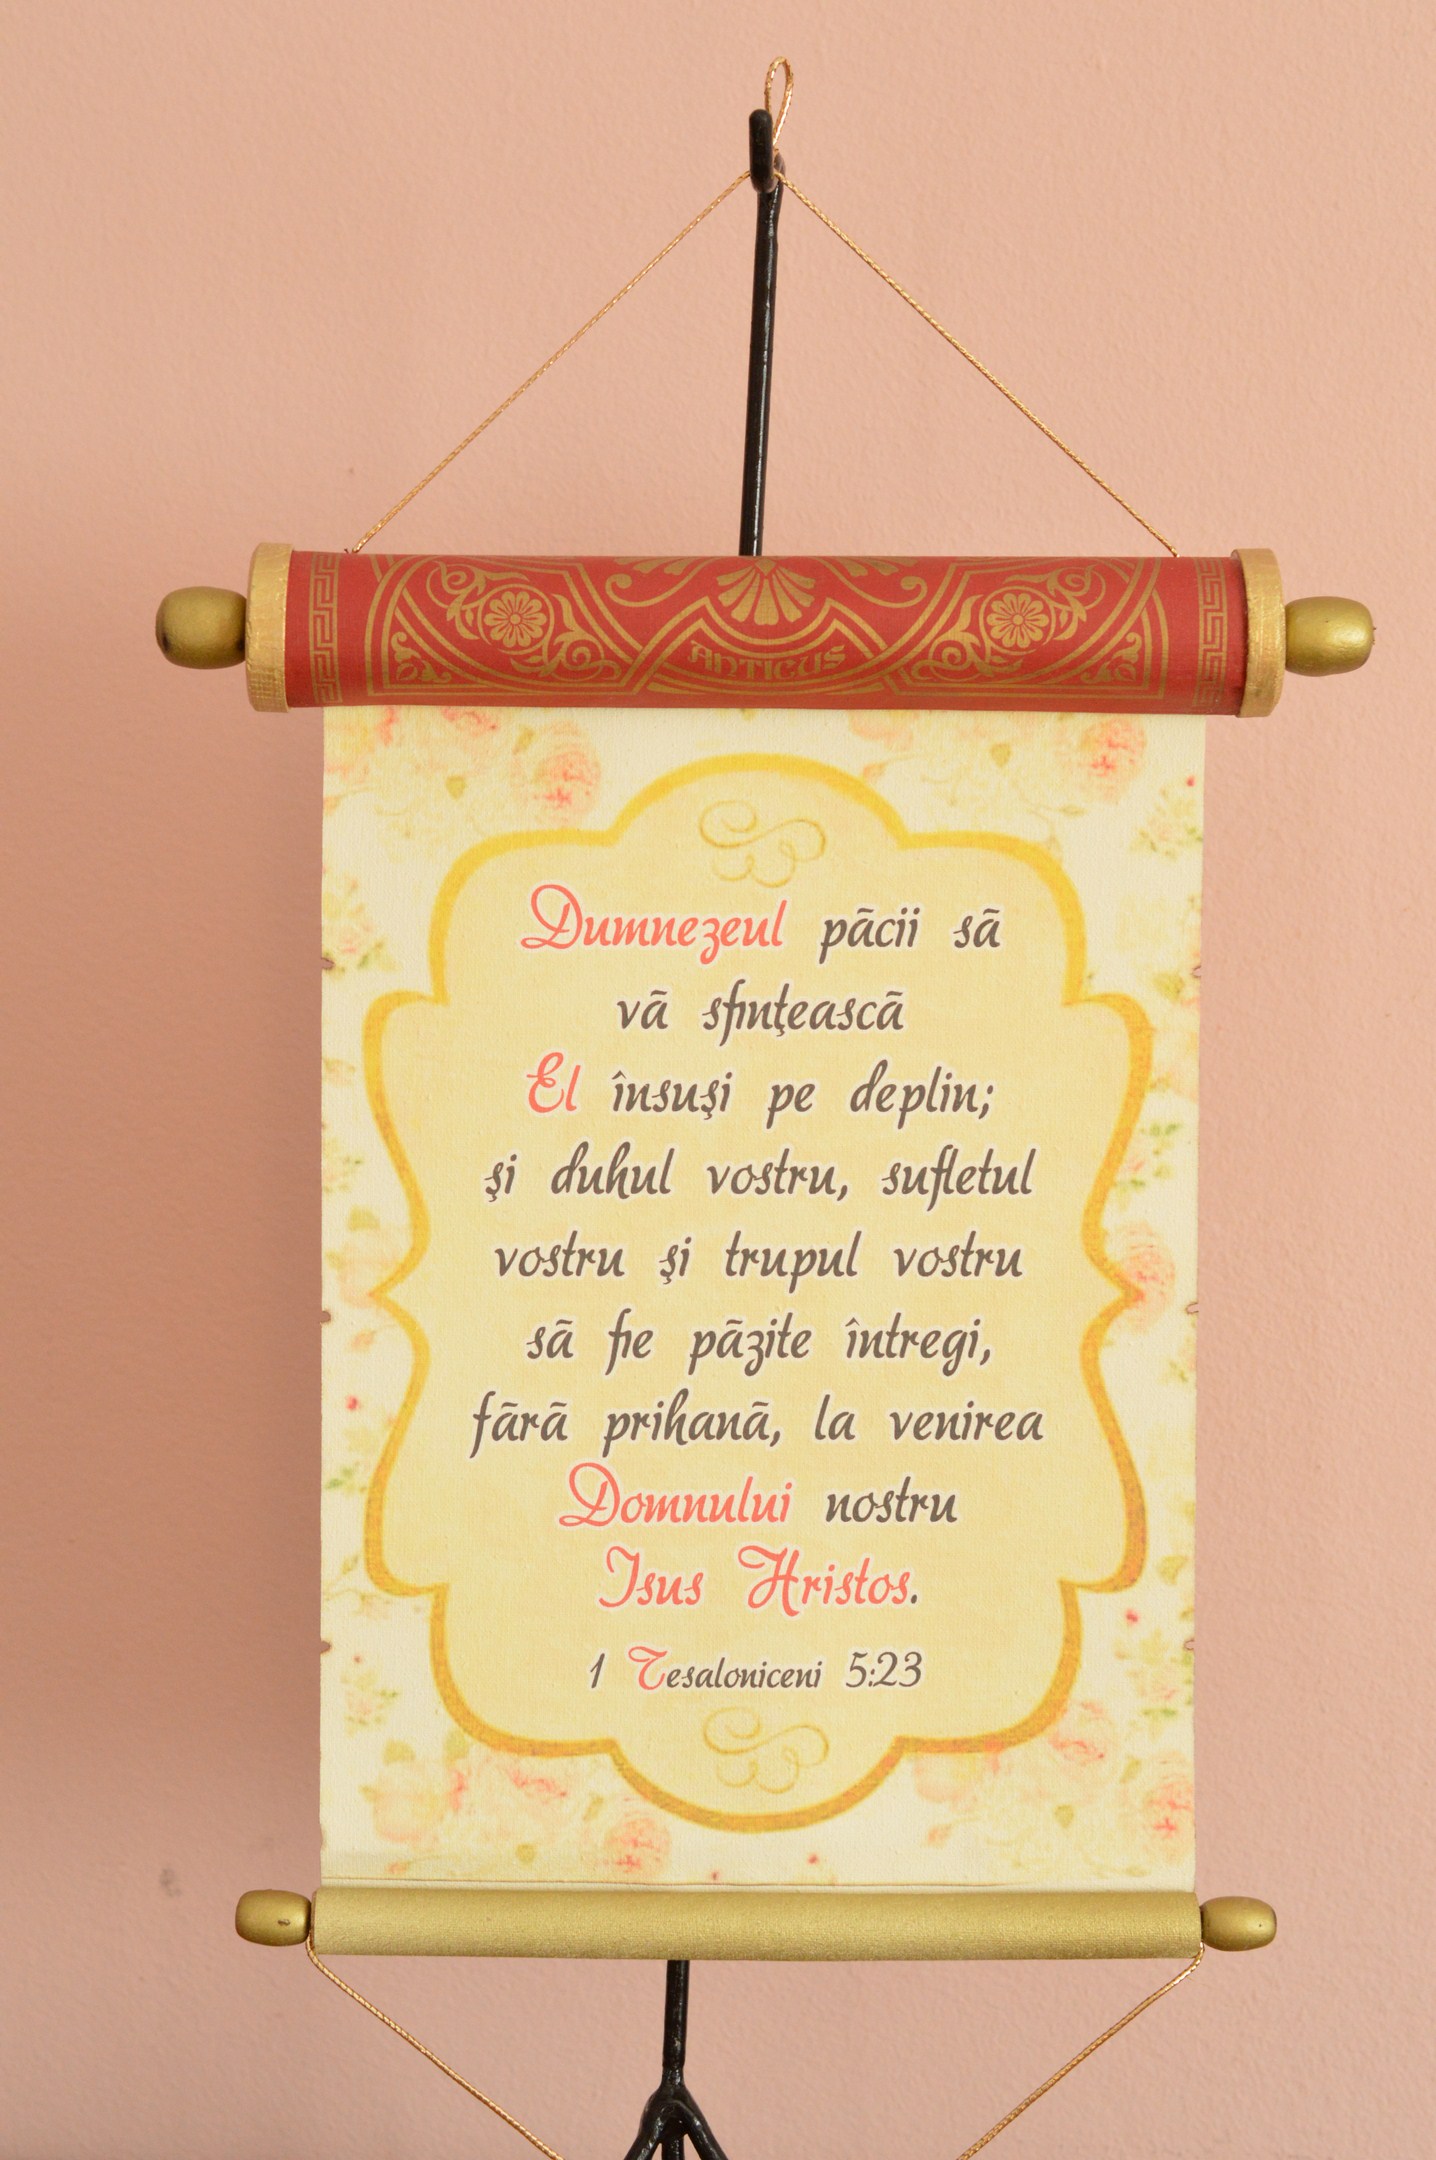 ANTICUS
Dumnezeul pãcii sã
vã sfinţeascã
El însuşi pe deplin;
şi duhul vostru, sufletul
vostru şi trupul vostru
sã fie pãzite întregi,
fãrã prihanã, la venirea
Domnului nostru
Isus Hristos.
1 Tesaloniceni 5:23